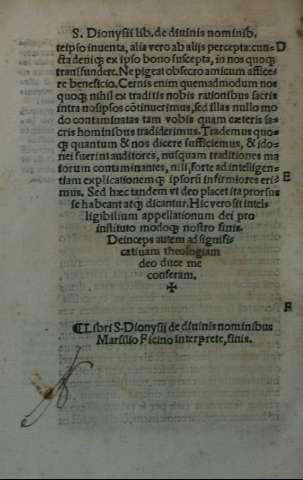 S. Dionysii lib. de diuinis nominib.
teipso inuenta, alia vero ab alijs percepta: cun-
cta deniqʒ ex ipso bono suscepta, in nos quoqʒ
transfundere. Ne pigeat obsecro amicum affice-
re beneficio. Cernis enim quemadmodum nos
quoqʒ nihil ex traditis nobis rationibus sacris
intra nosipsos cõtinuerimus, sed illas nullo mo
do contaminatas tam vobis quam cæteris sa-
cris hominibus tradiderimus. Trademus quo-
qʒ quantum & nos dicere sufficiemus, & ido-
nei fuerint auditores, nusquam traditiones ma
iorum contaminantes, nisi, forte ad inteligen-
tiam explicationemqʒ ipsorũ infirmiores eri-
mus. Sed hæc tandem vt deo placet ita prorsus
se habeant atqʒ dicantur. Hic vero sit intel-
ligibilium appellationum dei pro
instituto modoqʒ nostro finis.
Deinceps autem ad signifi-
catiuam theologiam
deo duce me
conferam.
✠
¶Libri S. Dionysij de diuinis nominibus
Marsilio Ficino interprete, finis.
E
F